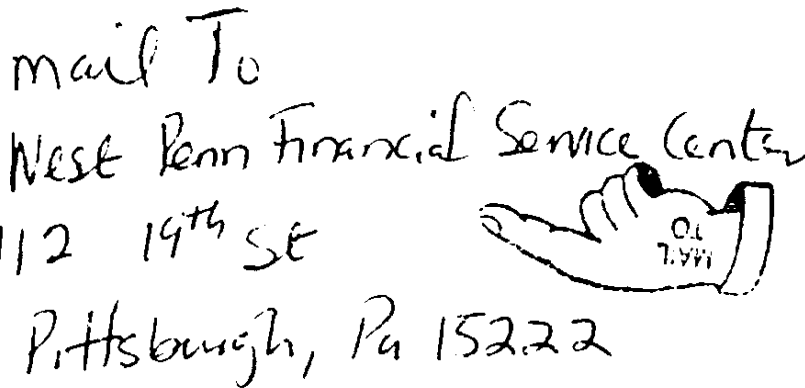 mail To
West Penn Financial Service Center
112 19th St
MAIL TO
Pittsburgh, Pa 15222